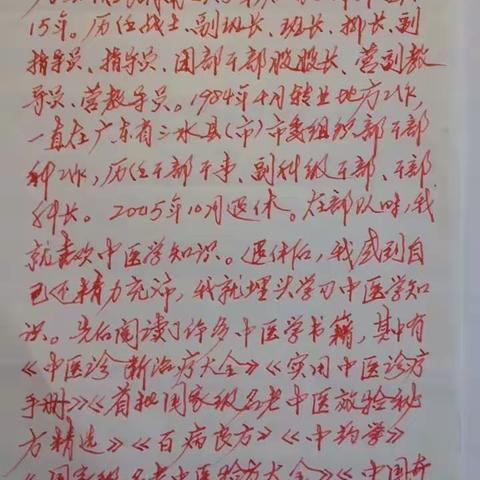 15年。历任战士、副班长、班长、排长、副
指导员、指导员、团部干部股股长、营副教
导员、营教导员。1984年4月转业地方工作,
一直在广东省三水县(市)市委组织部干部
科工作,历任干部干事、副科级干部、干部
科长。2005年10月退休。在部队时,我
就喜欢中医学知识。退休后,我感到自
己还精力充沛,我就埋头学习中医学知
识。先后阅读了许多中医学书籍,其中有
《中医诊断治疗大全》《实用中医诊疗
手册》《首批国家级名老中医效验秘
方精选》《百病良方》《中药学》
《国家级名老中医验方大全》《中国奇